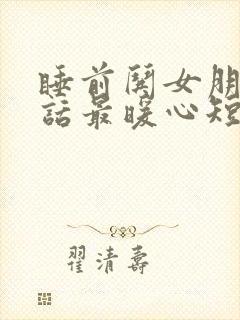 睡前闋女朋
話最暖心短
翟清壽